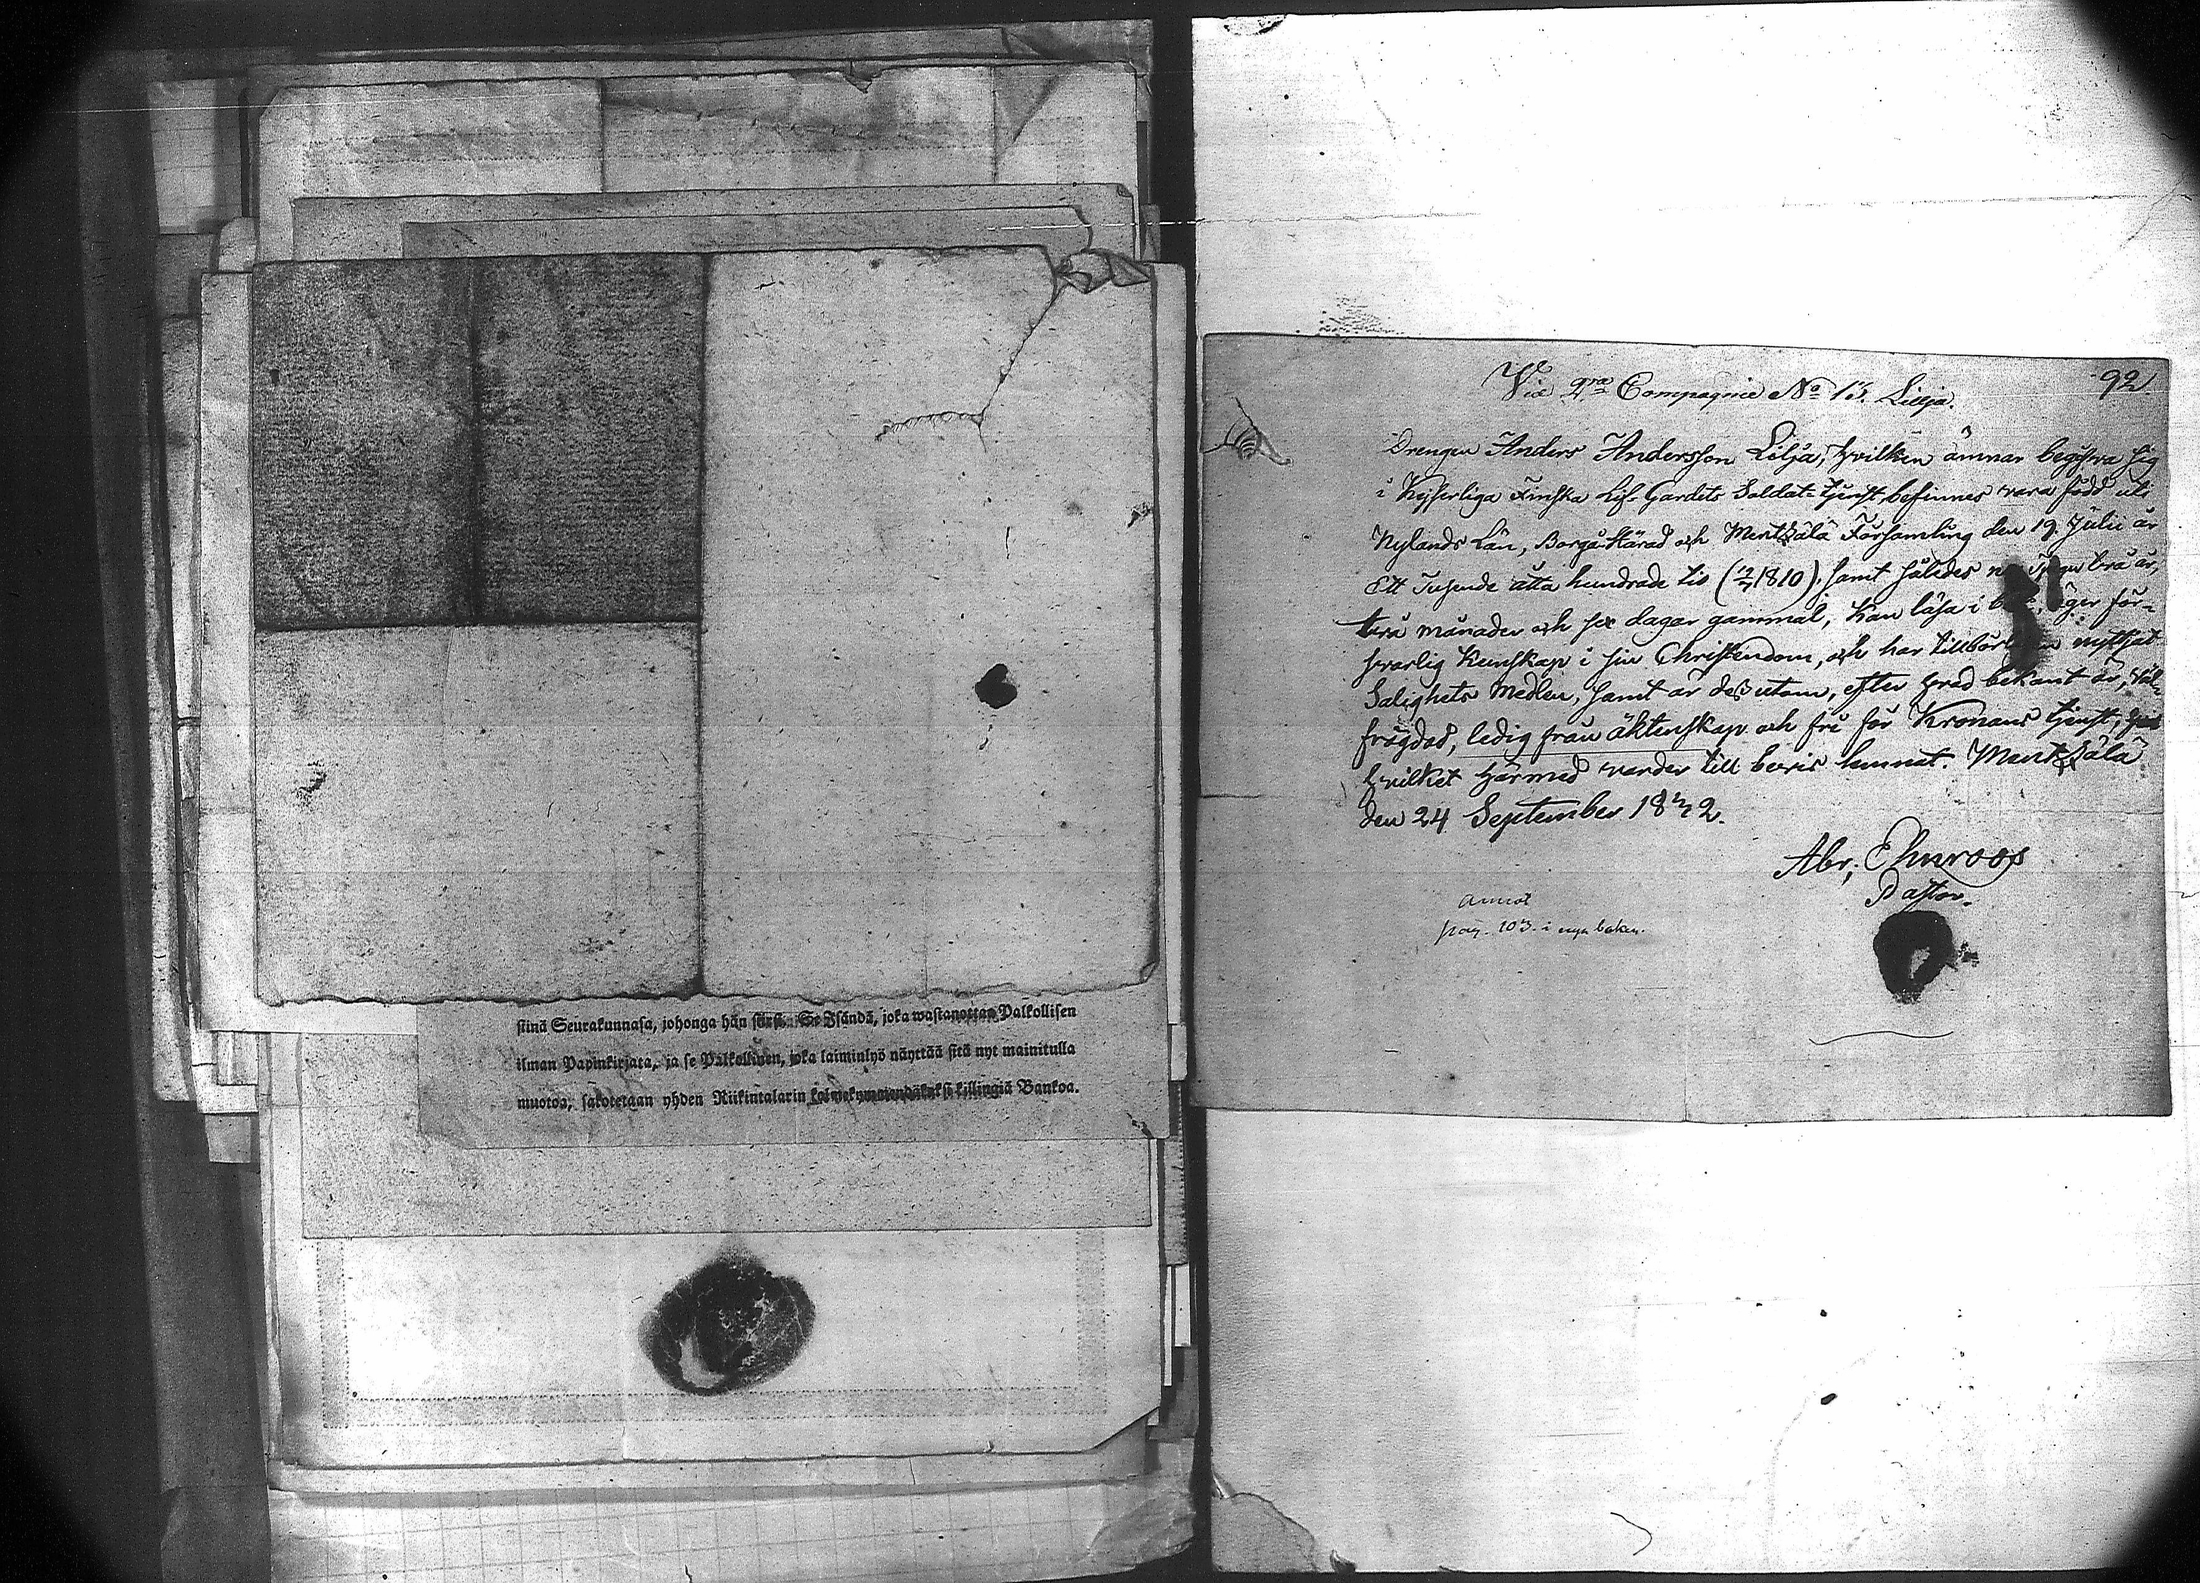 stinä Seurakunnasa, johonga hän siirsi. Se Isändä, joka wastanottaa Palkollisen
ilman Papinkirjata, ja se Palkollinen, joka laiminlyö näyttää sitä nyt mainitulla
muotoa, sakotetaan yhden Riikintalarin kolmekymmendäkaksi killingiä Bankoa.
92
Vid 4:de Compagnie No 13. Lilja.
Drengen Anders Andersson Lilja, hvilken ämnar begifva sig
i Kejserliga Finska Lif-Gardets Soldat-tjenst, befinnes vara född uti
Nylands Län, Borgå Härad och Mentsälä Församling den 19 Julii år
Ett Tusende åtta hundrade tio (19/7 1810), samt således två år,
två månader och sex dagar gammal, kan läsa i bok, äger för-
svarlig kunskap i sin Christendom, och har nyttjat
Salighets Medlen, samt är dessutom, efter hvad bekant är, väl-
frägdad, ledig från äktenskap och fri för Kronans tjenst,
hvilket härmed varder till bevis lemnat. Mentsälä
den 24 September 1832.
Abr. Ehnroos
Pastor.
Annot
pag. 103 i nya boken.